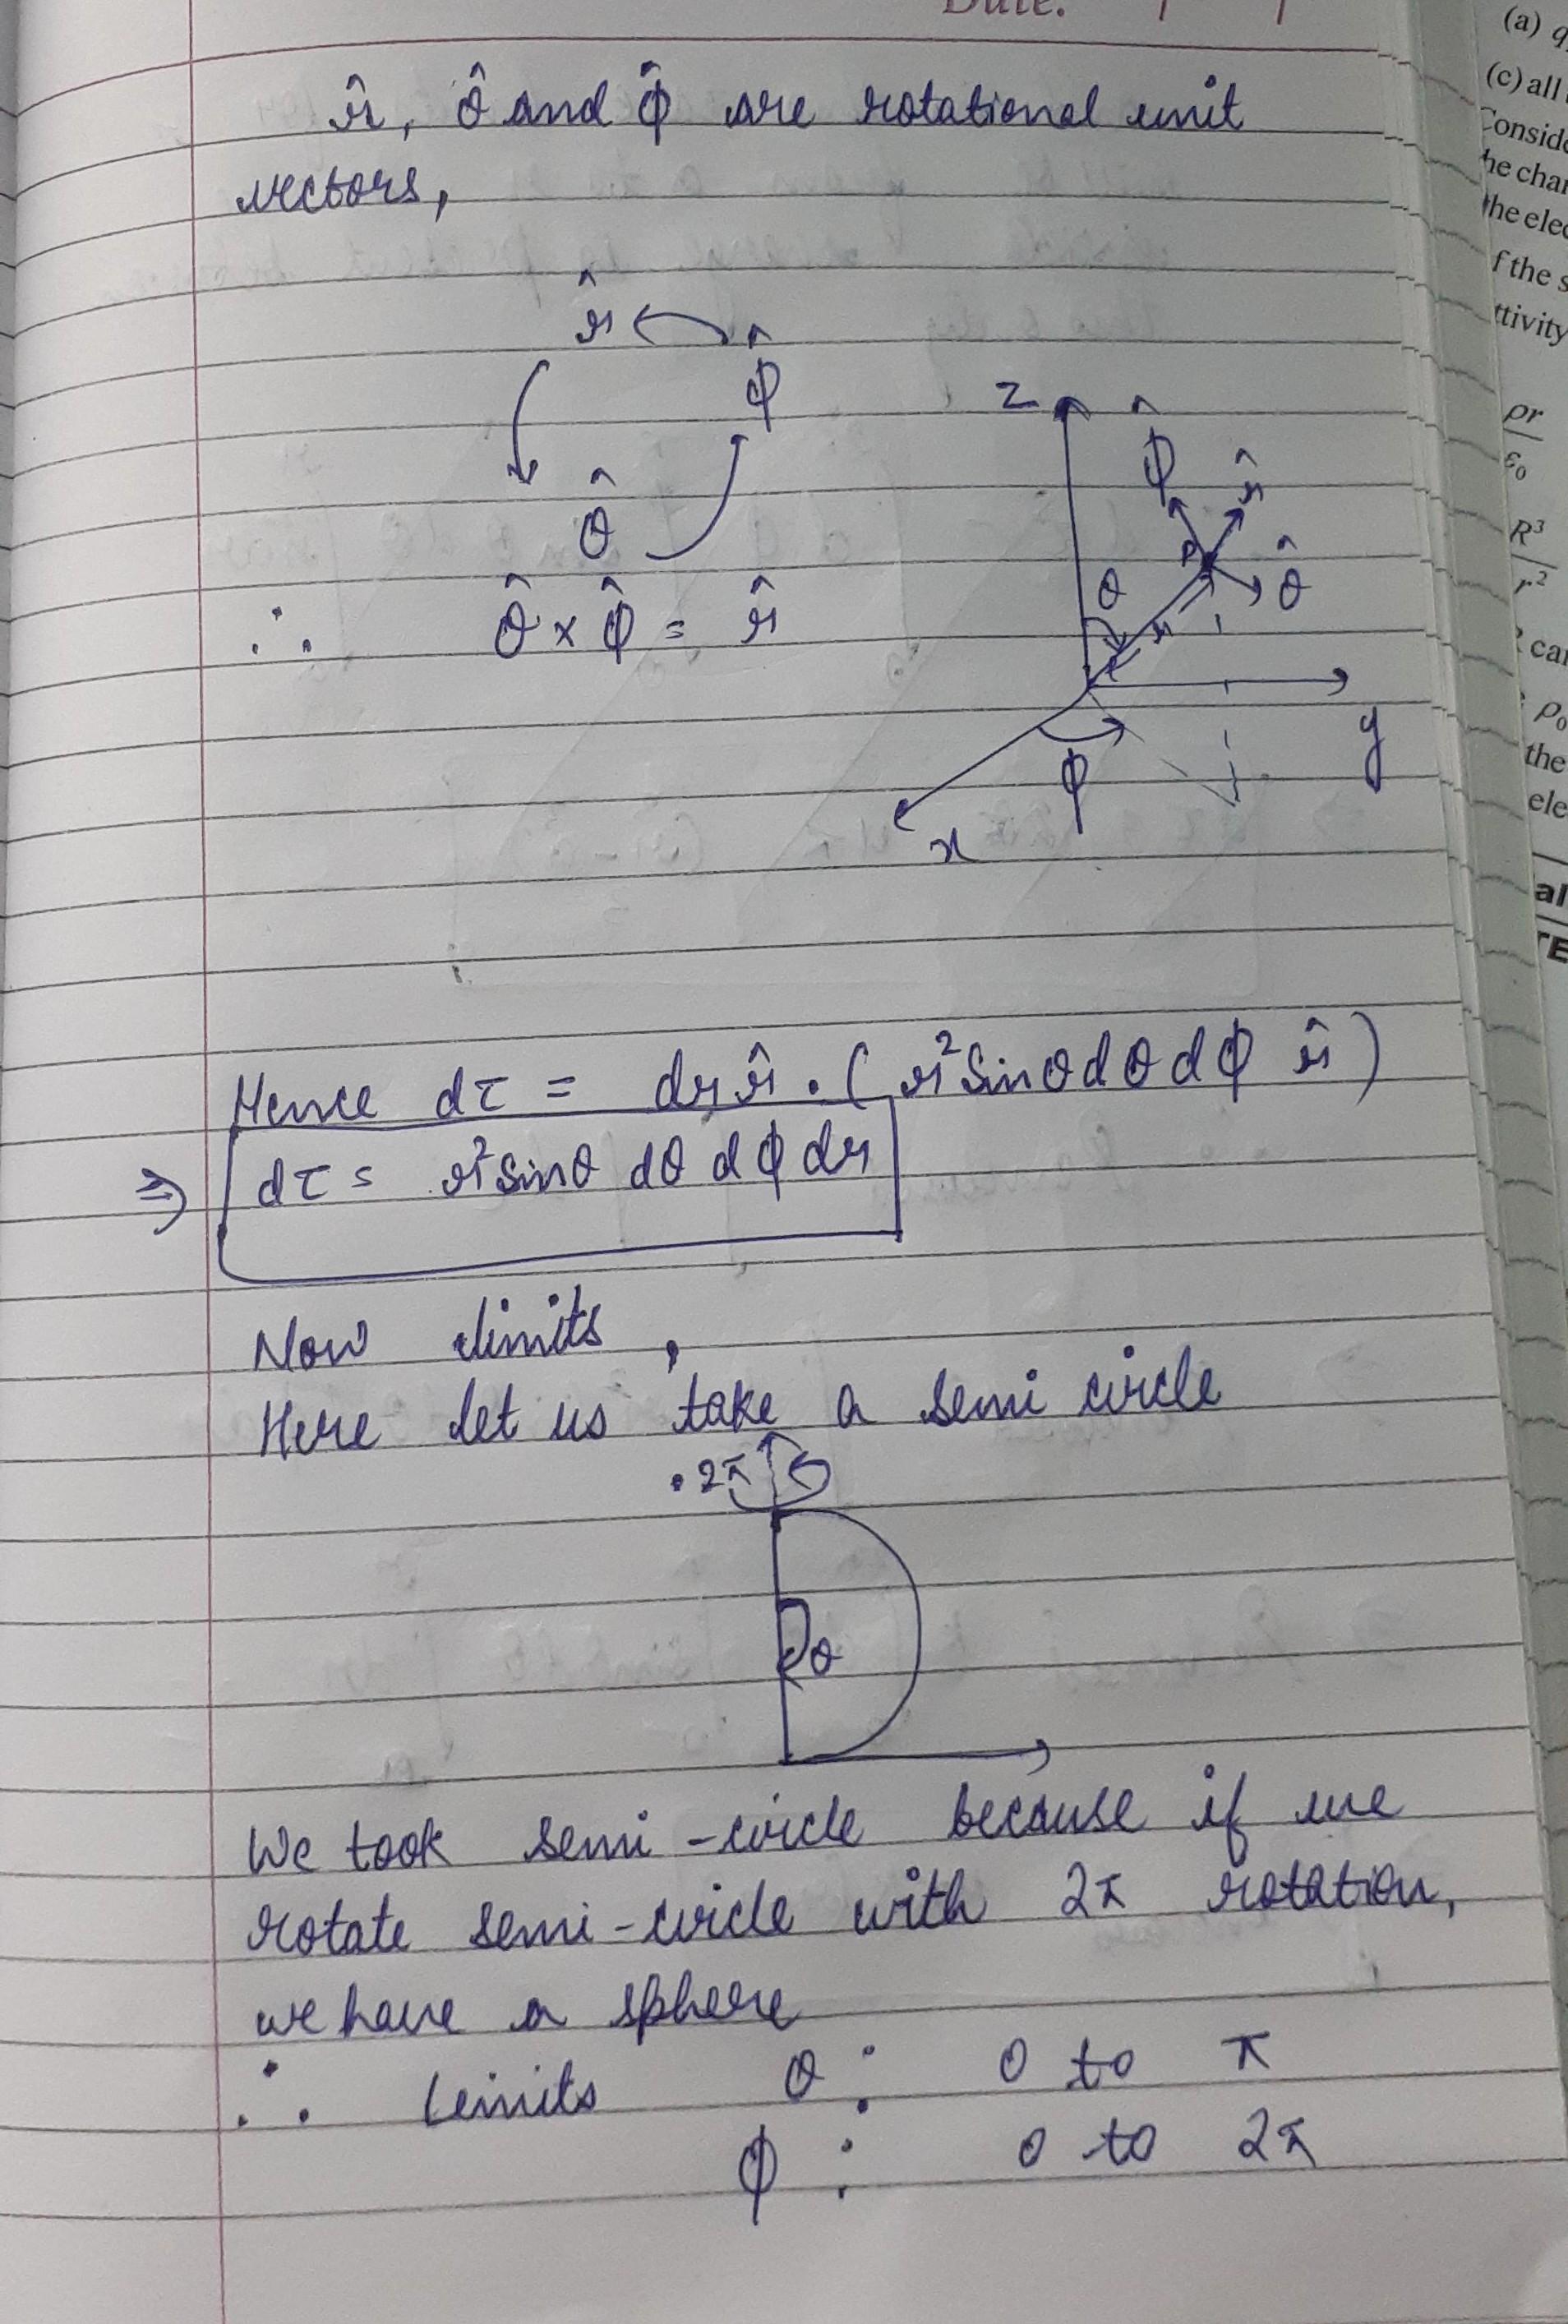 Date:
r̂, θ̂ and ϕ̂ are rotational unit
vectors,
r̂
ϕ̂
θ̂
∴ θ̂ × ϕ̂ = r̂
z
ϕ̂
r̂
P
θ̂
θ
r
y
ϕ
x
Hence dτ = dr r̂ . ( r²sinθ dθ dϕ r̂ )
⇒ dτ = r²sinθ dθ dϕ dr
Now limits,
Here let us take a semi circle
2π
θ
We took semi-circle because if we
rotate semi-circle with 2π rotation,
we have a sphere
∴ Limits θ : 0 to π
ϕ : 0 to 2π
(a) q
(c) all
Conside
he char
the elec
f the s
ttivity
ρr
ε₀
R³
r²
ρ₀
the
ele